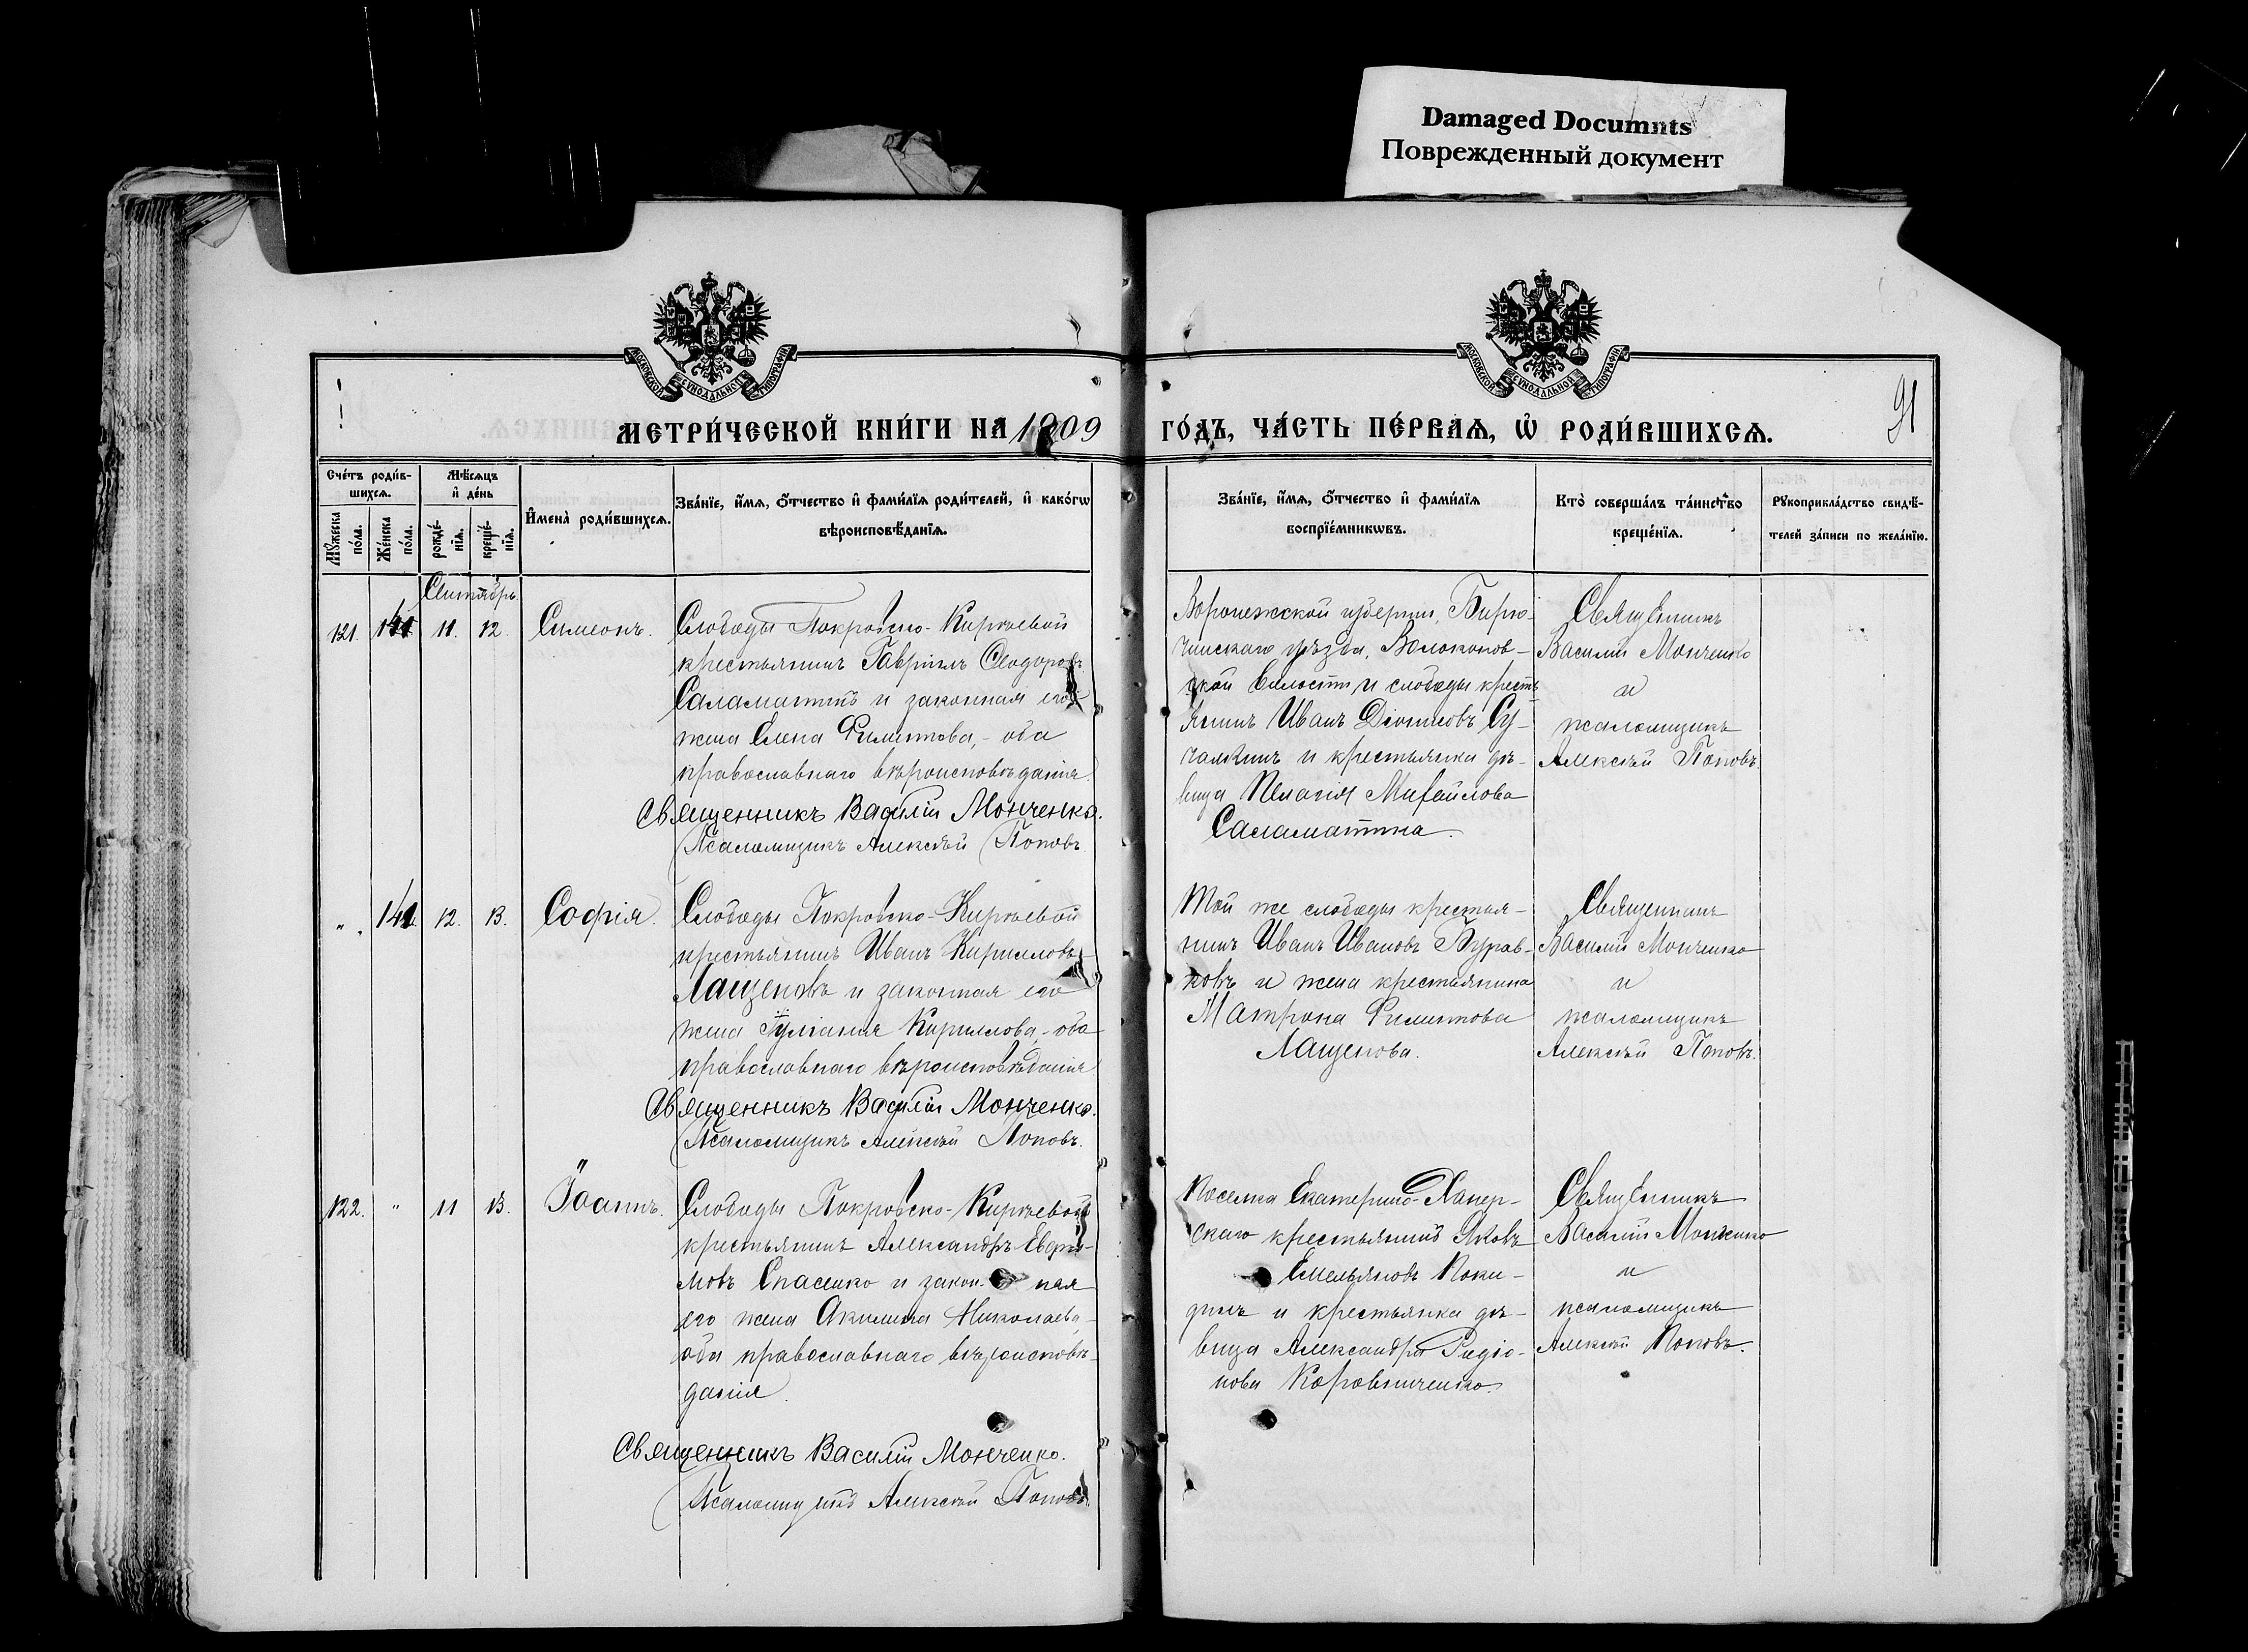 Damaged Documnts
Поврежденный документ
МОСКОВСКОЙ СѴНОДАЛЬНОЙ ТИПОГРАФІИ
МОСКОВСКОЙ СѴНОДАЛЬНОЙ ТИПОГРАФІИ
МЕТРИ́ЧЕСКОЙ КНИ́ГИ НА 1909
ГО́ДЪ, ЧА́СТЬ ПЕ́РВАѦ, Ѡ҆ РОДИ́ВШИХСѦ.
91
Сче́тъ роди́в-
шихсѧ.
Мѣ́сѧцъ
и҆ де́нь
Мꙋ́жеска
по́ла.
Же́нска
по́ла.
рожде́-
нїѧ.
креще́-
нїѧ.
И҆мена̀ роди́вшихсѧ.
Зва́нїе, и҆́мѧ, ѻ҆́тчество и҆ фами́лїѧ роди́телей, и҆ како́гѡ
вѣроисповѣ́данїѧ.
Зва́нїе, и҆́мѧ, ѻ҆́тчество и҆ фами́лїѧ
воспрїе́мникѡвъ.
Кто̀ соверша́лъ та́инство
креще́нїѧ.
Рꙋкоприкла́дство свидѣ́-
телей за́писи по жела́нїю.
Сентябрь
121. 11. 12. Симеонъ.
Слободы Покровско-Киреевой
крестьянинъ Гавріилъ Ѳеодоровъ
Саламатинъ и законная его
жена Елена Филиппова, - оба
православнаго вѣроисповѣданія.
Священникъ Василій Монченко.
Псаломщикъ Алексѣй Поповъ.
Воронежской губерніи, Бирю-
чинскаго уѣзда, Волоконов-
ской волости и слободы кресть
янинъ Иванъ Діонисовъ Су-
чалкинъ и крестьянка дѣ-
вица Пелагія Михайлова
Саламатина.
Священникъ
Василій Монченко
и
псаломщикъ
Алексѣй Поповъ.
" 12. 13. Софія.
Слободы Покровско-Киреевой
крестьянинъ Иванъ Кирилловъ
Лащеновъ и законная его
жена Іуліанія Кириллова, - оба
православнаго вѣроисповѣданія
Священникъ Василій Монченко.
Псаломщикъ Алексѣй Поповъ.
Той же слободы крестья-
нинъ Иванъ Ивановъ Бурав-
ковъ и жена крестьянина
Матрона Филиппова
Лащенова.
Священникъ
Василій Монченко
и
псаломщикъ
Алексѣй Поповъ.
122. " 11 13. Іоаннъ.
Слободы Покровско-Киреевой
крестьянинъ Александръ Евфи-
мовъ Спасенко и закон- ная
его жена Акилина Николаева,
оба православнаго вѣроисповѣ-
данія.
Священникъ Василій Мончепко.
Псаломщикъ Алексѣй Поповъ.
Поселка Екатерино-Хапер-
скаго крестьянинъ Яковъ
Емельяновъ Поки-
динъ и крестьянка дѣ-
вица Александра Родіо-
нова Коровниченко.
Священникъ
Василій Мончепко
и
псаломщикъ
Алексѣй Поповъ.